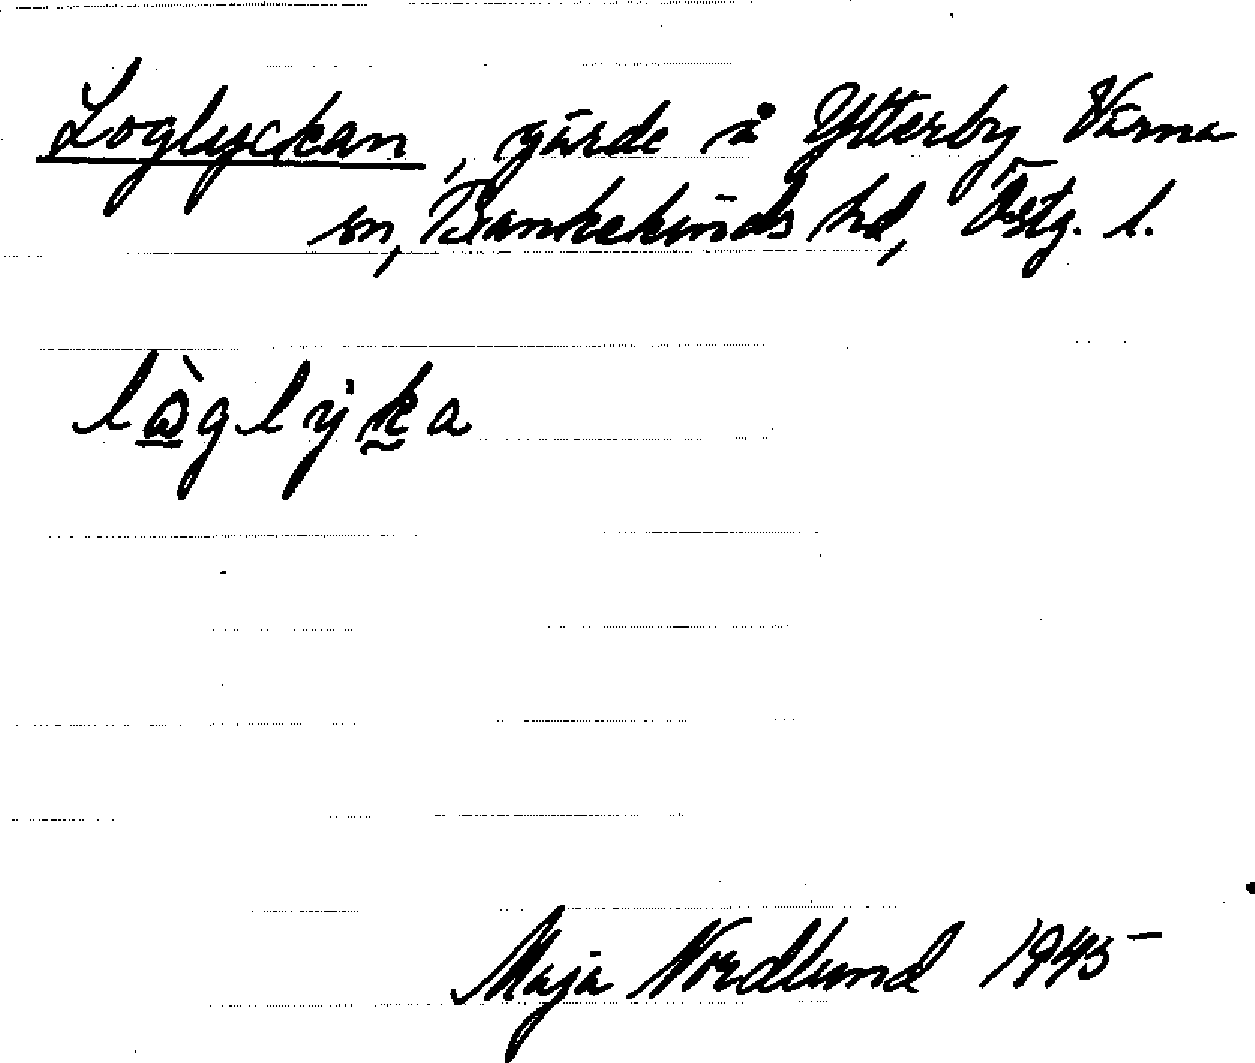 Loglyckan, gärde å Ytterby Värna
sn, Bankekinds hd, Östg. l.
lòglyka
Maja Nordlund 1945